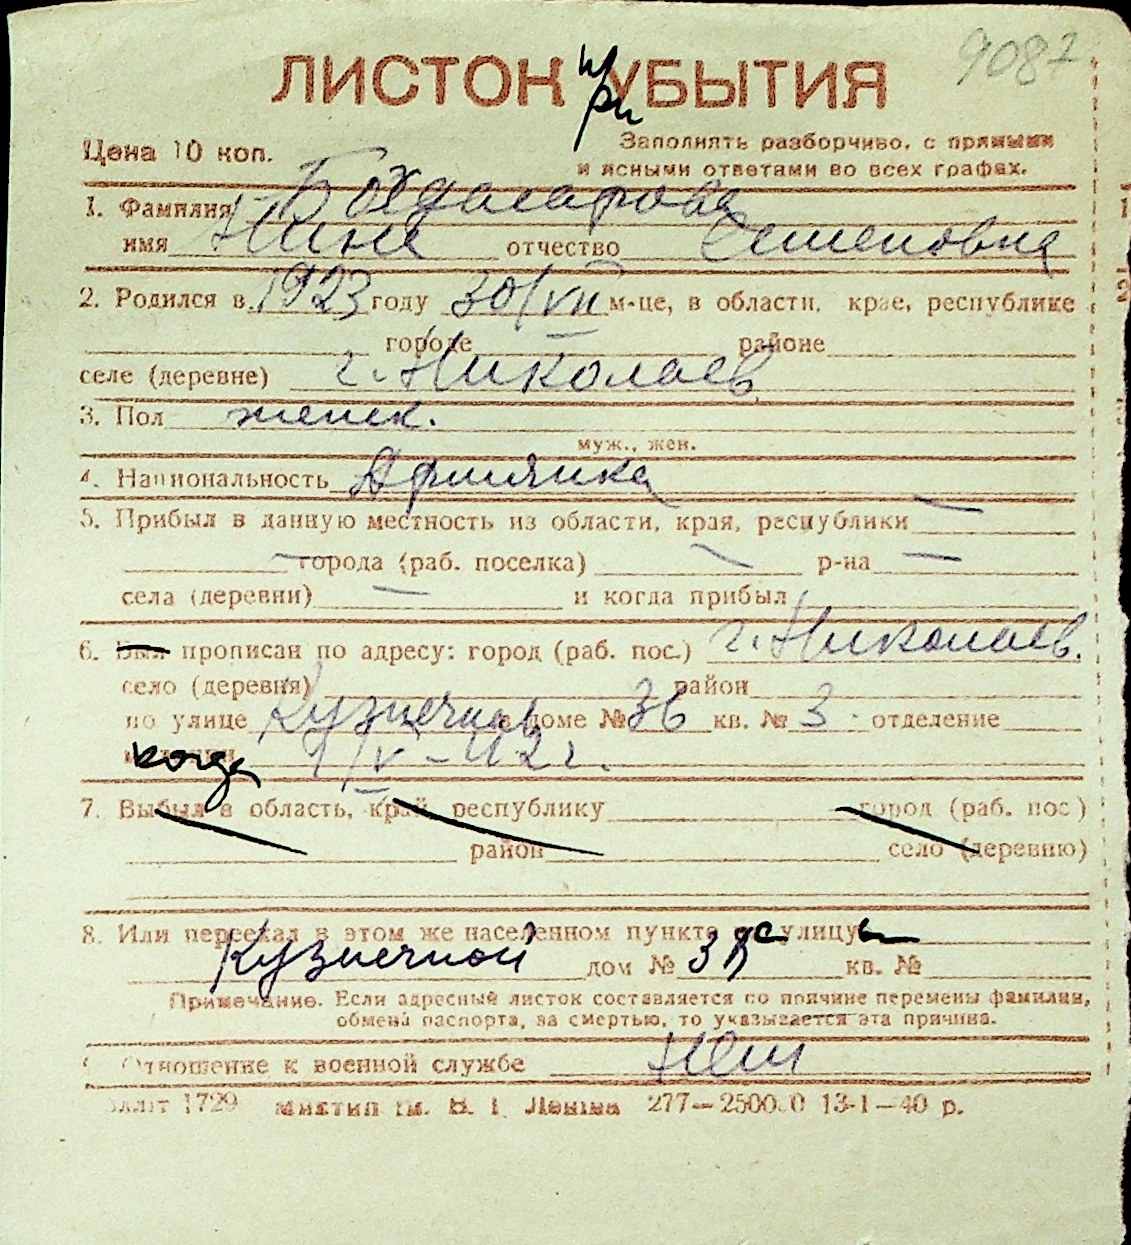 9087
ЛИСТОК при УБЫТИЯ
Цена 10 коп.
Заполнять разборчиво, с прямыми
и ясными ответами во всех графах.
1. Фамилия Богдасарова
имя Нина отчество Семеновна
2. Родился в 1923 году 30/VII м-це, в области, крае, республике
городе районе
селе (деревне) г. Николаев
3. Пол женск.
муж., жен.
4. Национальность Армянка
5. Прибыл в данную местность из области, края, республики —
— города (раб. поселка) — р-на —
села (деревни) — и когда прибыл
6. Был прописан по адресу: город (раб. пос.) г. Николаев.
село (деревня) район
по улице Кузнечной в доме № 36 кв. № 3 отделение
когда 1/V-42 г.
7. Выбыл в область, край, республику город (раб. пос)
район село (деревню)
8. Или переехал в этом же населенном пункте с улицы
Кузнечной дом № кв. №
Примечание. Если адресный листок составляется по причине перемены фамилии,
обмена паспорта, за смертью, то указывается эта причина.
Отношение к военной службе Нет
1729 им. В. И. Ленина 277—250000 13-1—40 р.